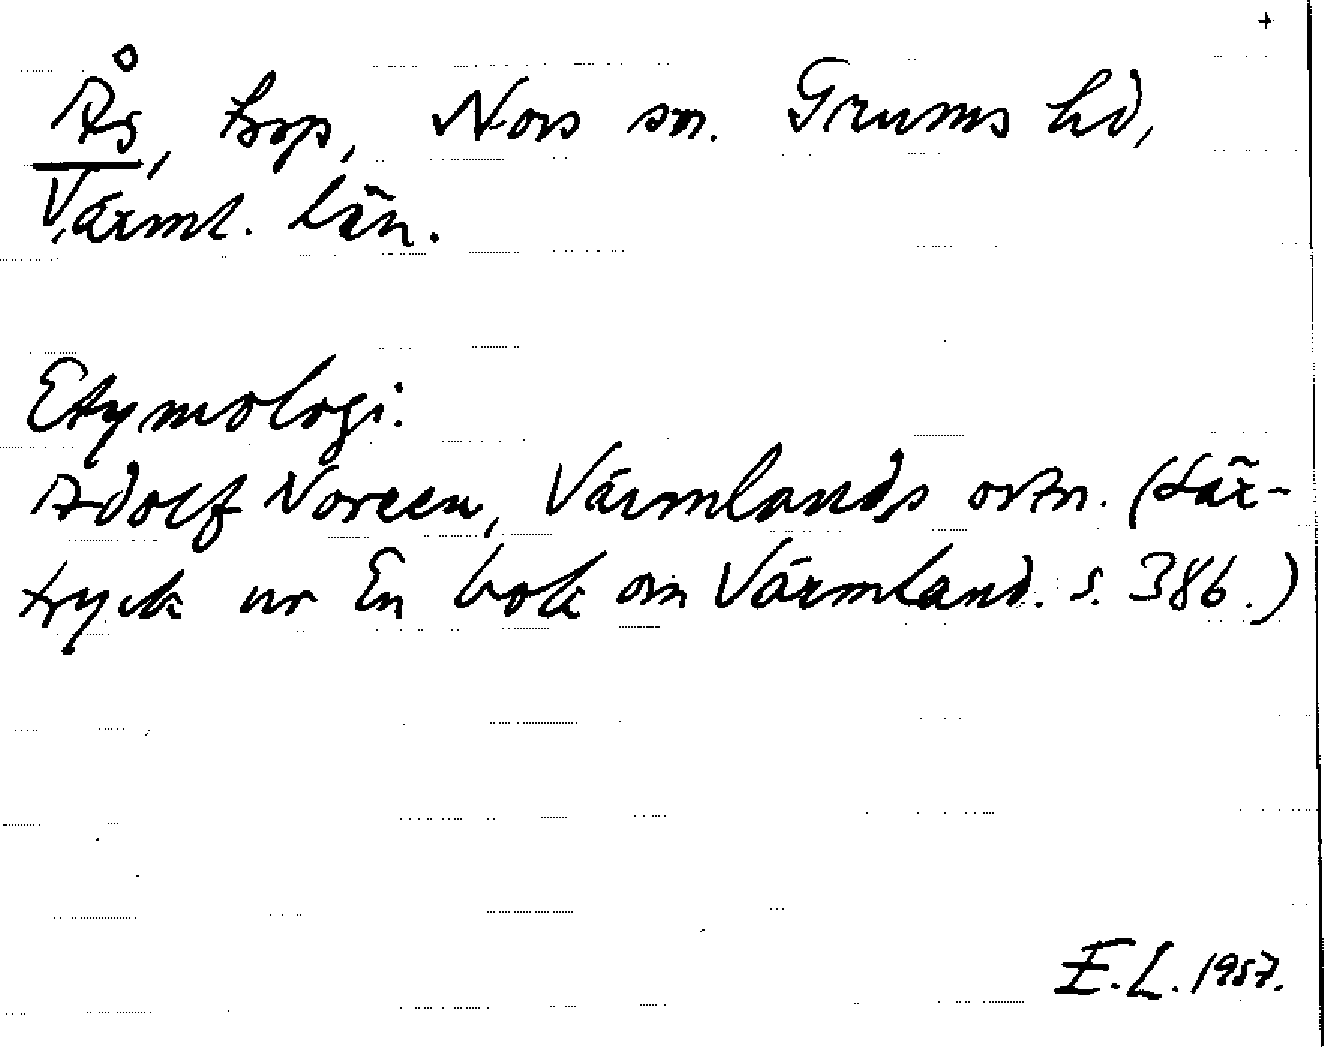 +
Ås, torp, Nors sn. Grums hd,
Värml. län.
Etymologi:
Adolf Noreen, Värmlands ortn. (Sär-
tryck ur En bok om Värmland. s. 386.)
E.L. 1957.